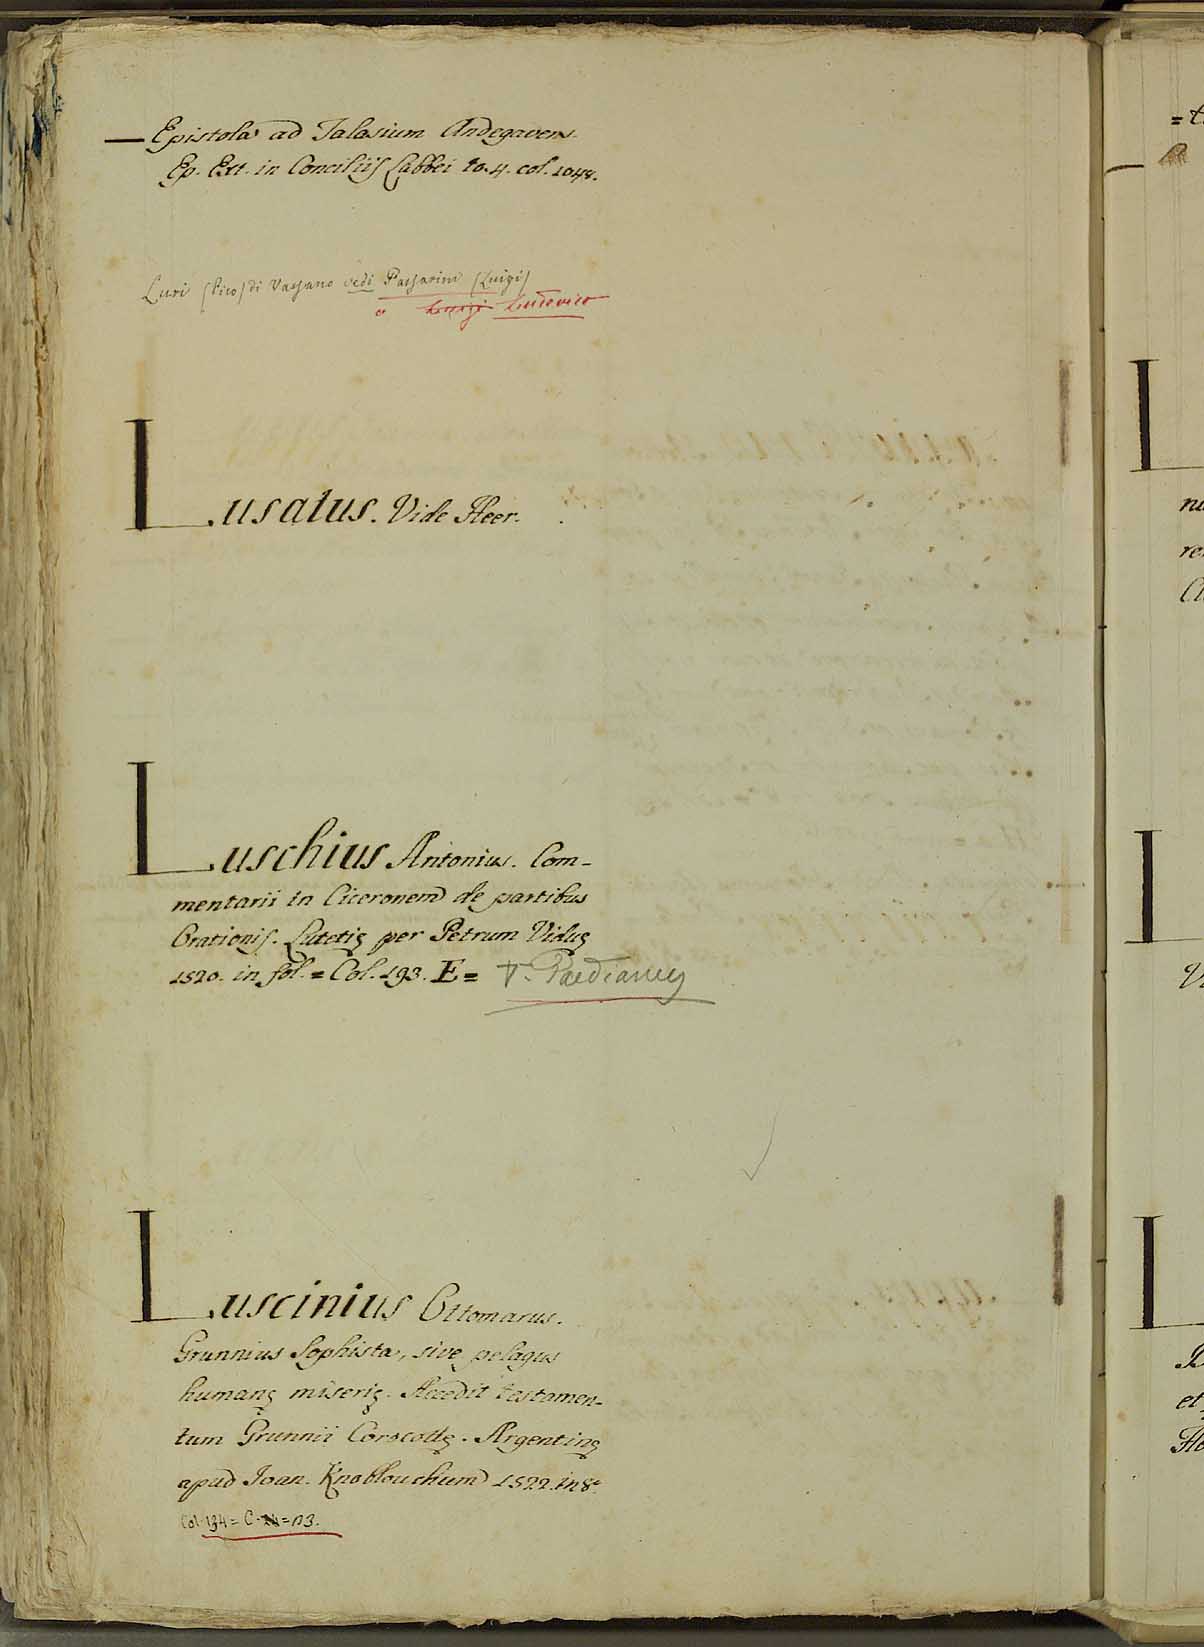 — Epistola ad Talasium Andegavens.
Ep. Ext. in Conciliis Labbei to. 4. col. 1048.
Luri (Pico) di Vassano vedi Passarini (Luigi)
o Luigi Ludovico
Lusatus. Vide Heer.
Luschius Antonius. Com-
mentarii in Ciceronem de partibus
Orationis. Lutetię per Petrum Viduę
1520. in fol. = Col. 193. E = V. Paedianus
Luscinius Ottomarus.
Grunnius Sophista, sive pelagus
humanę miserię. Accedit testamen-
tum Grunnii Corocottę. Argentinę
apud Joan. Knoblouchum 1522. in 8°
Col. 134 = C. = n3.
= t
nu
re
Cl
Vi
et
He